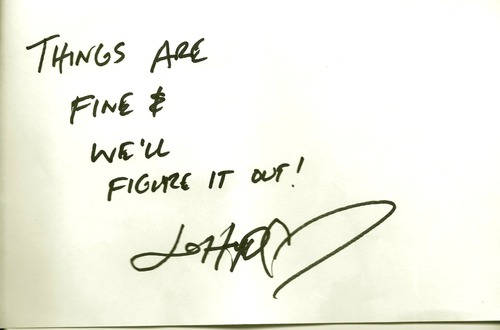 THINGS ARE
FINE &
WE'LL
FIGURE IT OUT!